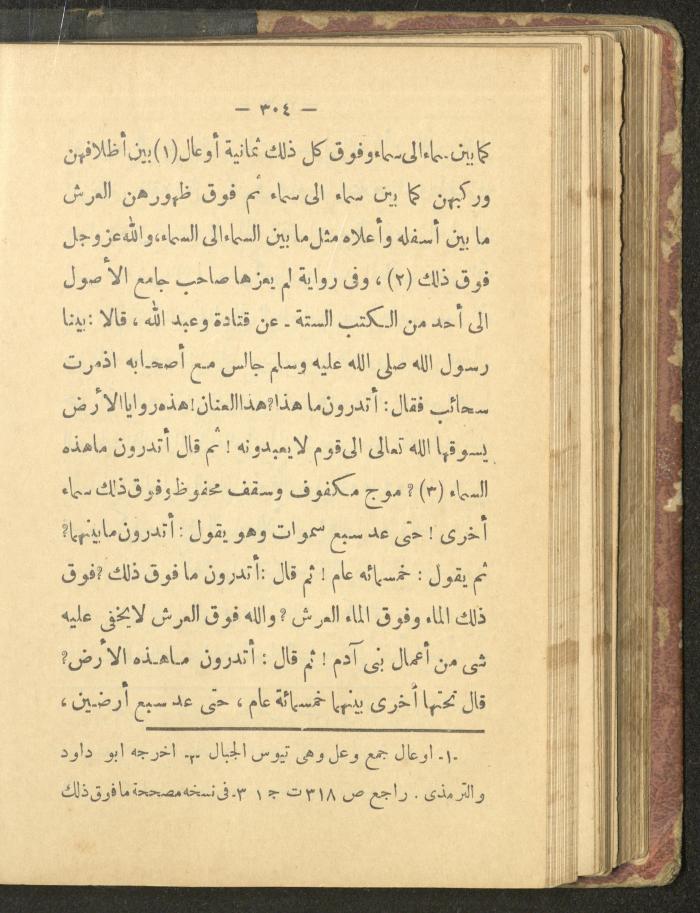 — ٣٠٤ —
كما بين سماء الى سماء وفوق كل ذلك ثمانية أوعال (١) بين أظلافهن
وركبهن كما بين سماء الى سماء ثم فوق ظهورهن العرش
ما بين أسفله وأعلاه مثل ما بين السماء الى السماء، والله عز وجل
فوق ذلك (٢) ، وفى رواية لم يعزها صاحب جامع الأصول
الى أحد من الكتب الستة ـ عن قتادة وعبد الله ، قالا : بينا
رسول الله صلى الله عليه وسلم جالس مع أصحابه اذ مرت
سحائب فقال : أتدرون ما هذا؟ هذا العنان! هذه روايا الأرض
يسوقها الله تعالى الى قوم لا يعبدونه ! ثم قال أتدرون ما هذه
السماء (٣) ؟ موج مكفوف وسقف محفوظ وفوق ذلك سماء
أخرى ! حتى عد سبع سموات وهو يقول : أتدرون ما بينهما؟
ثم يقول : خمسمائه عام ! ثم قال : أتدرون ما فوق ذلك ؟ فوق
ذلك الماء وفوق الماء العرش ؟ والله فوق العرش لا يخفى عليه
شى من أعمال بنى آدم ! ثم قال : أتدرون ما هذه الأرض؟
قال تحتها أخرى بينهما خمسمائة عام ، حتى عد سبع أرضين ،
-١- اوعال جمع وعل وهى تيوس الجبال -٢- اخرجه ابو داود
والترمذى . راجع ص ٣١٨ ت ج ١ ٣- فى نسخه مصححة ما فوق ذلك